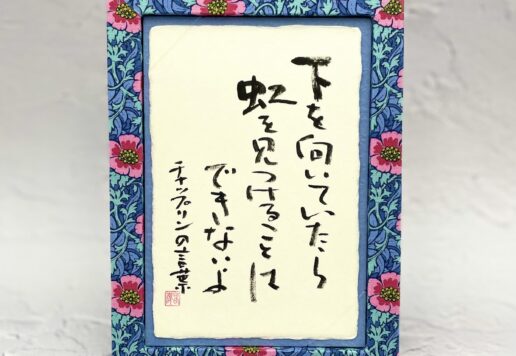 下を向いていたら
虹を見つけることは
できないよ
チャップリンの言葉